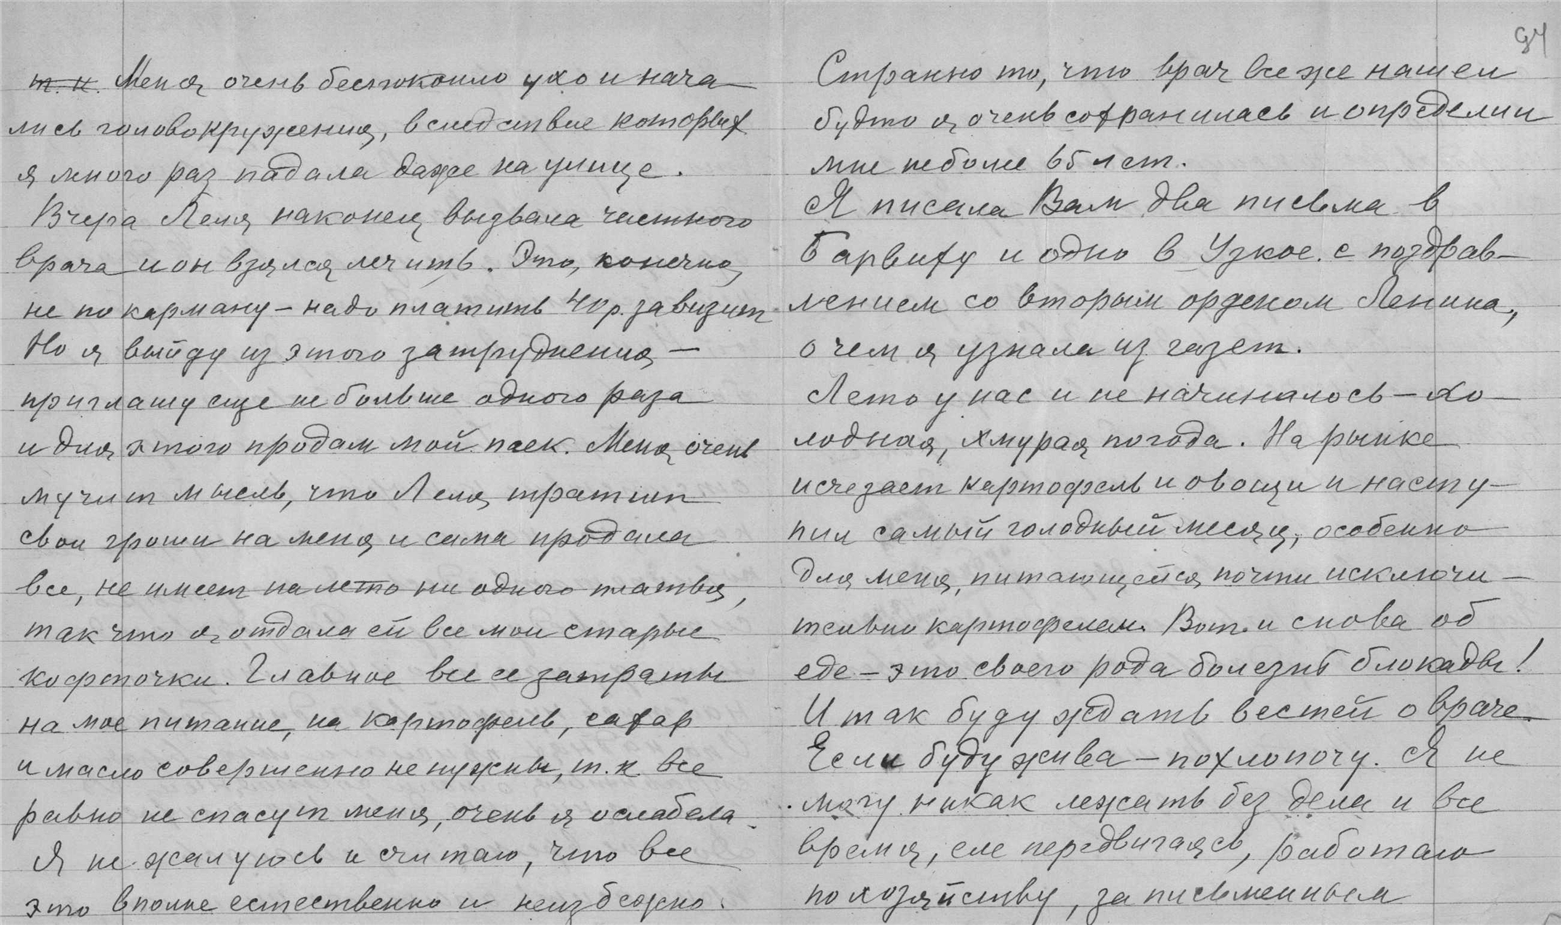 т.к. Меня очень беспокоило ухо и нача
лись головокружения, вследствие которых
я много раз падала даже на улице.
Вчера Леля наконец вызвала частного
врача и он взялся лечить. Это, конечно,
не по карману – надо платить 40 р. за визит
Но я выйду из этого затруднения –
приглашу еще не больше одного раза
и для этого продам мой паек. Меня очень
мучит мысль, что Леля тратит
свои гроши на меня и сама продала
все, не имеет на лето ни одного платья,
так что я отдала ей все мои старые
кофточки. Главное все ее затраты
на мое питание, на картофель, сахар
и масло совершенно не нужны, т.к. все
равно не спасут меня, очень я ослабела.
Я не жалуюсь и считаю, что все
это вполне естественно и неизбежно.
94
Странно то, что врач все же нашел
будто я очень сохранилась и определил
мне не более 65 лет.
Я писала Вам два письма в
Барвиху и одно в Узкое. с поздрав–
лением со вторым орденом Ленина,
о чем я узнала из газет.
Лето у нас и не начиналось – хо–
лодная, хмурая погода. На рынке
исчезает картофель и овощи и насту–
пил самый голодный месяц, особенно
для меня, питающейся почти исключи–
тельно картофелем. Вот и снова об
еде – это своего рода болезнь блокады!
Итак буду ждать вестей о враче.
Если буду жива – похлопочу. Я не
могу никак лежать без дела и все
время, еле передвигаясь, работаю
по хозяйству, за письменным